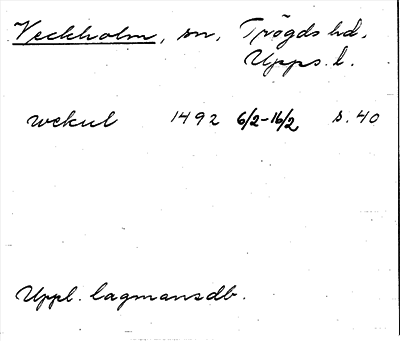 Veckholm, sn, Trögds hd.
Upps. l.
wekul 1492 6/2-16/2 s. 40
Uppl. lagmansdb.